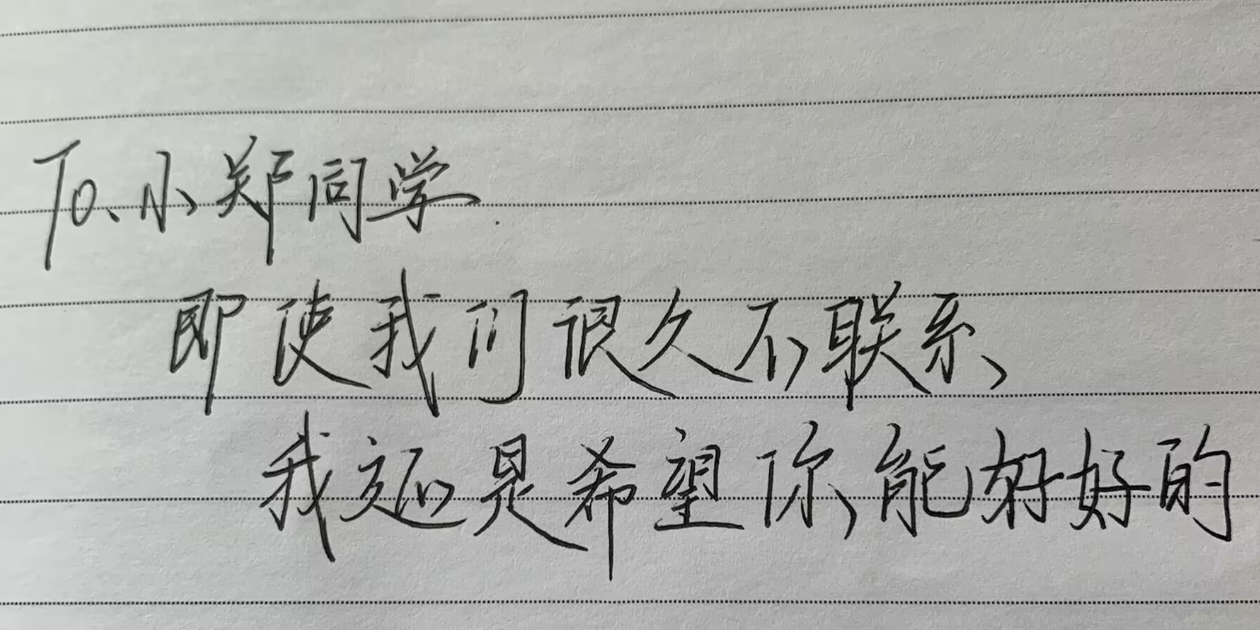 To、小郑同学
即使我们很久不联系、
我还是希望你能好好的